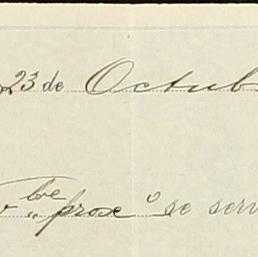 23 de Octub
be prox.º se serv